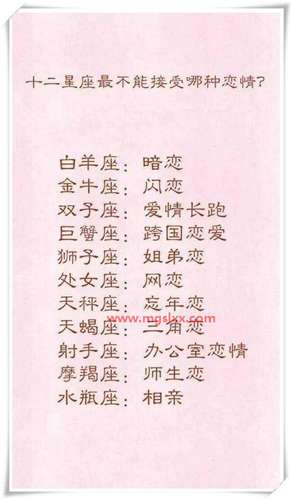 十二星座最不能接受哪种恋情?
白羊座：暗恋
金牛座：闪恋
双子座：爱情长跑
巨蟹座：跨国恋爱
狮子座：姐弟恋
处女座：网恋
天秤座：忘年恋
www.mgslxx.com
天蝎座：三角恋
射手座：办公室恋情
摩羯座：师生恋
水瓶座：相亲